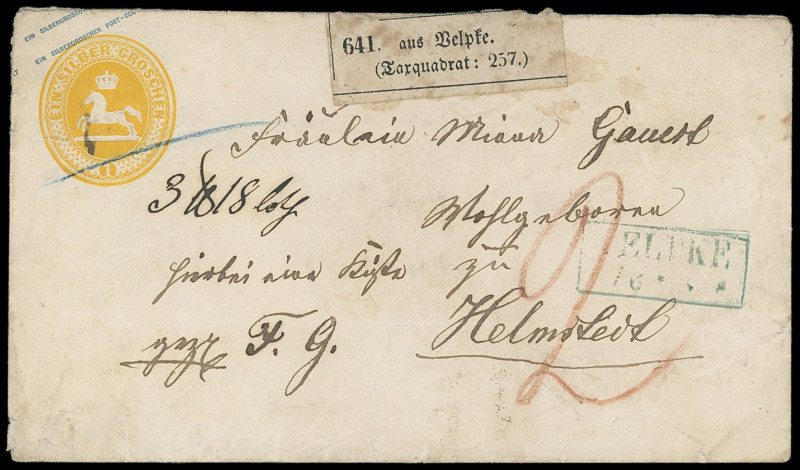 EIN SILBERGROSCHEN POST-COUV
EIN SILBERGROSCHEN POST-COU
EIN SILBER GROSCHEN
1
641. aus Velpke.
(Taxquadrat: 257.)
Fräulein Minna Gauert
3 ℔ 18 loth
Wohlgeboren
hierbei eine Kiste
zu
gez. F. G.
Helmstedt
2
ELPKE
16